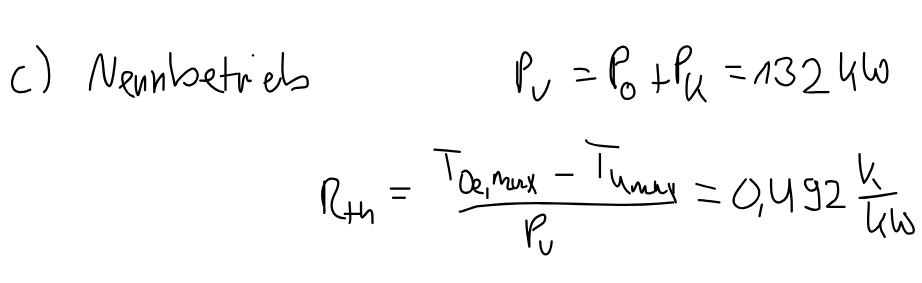 c) Nennbetrieb P_V = P_0 + P_K = 132 kW
R_th = (T_Oe,max − T_U max) / P_V = 0,492 K/kW